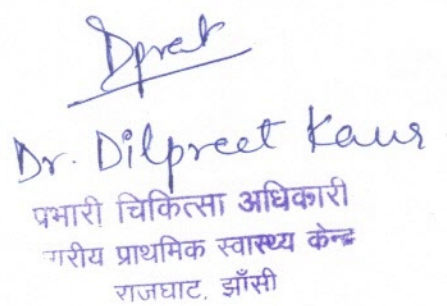 Dpret
Dr. Dilpreet Kaur
प्रभारी चिकित्सा अधिकारी
नगरीय प्राथमिक स्वास्थ्य केन्द्र
राजघाट, झाँसी